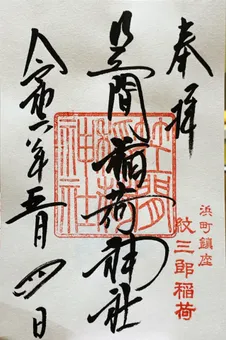 奉拝
笠間稲荷神社
令和六年五月四日
笠間
稲荷
神社
浜町鎮座
紋三郎稲荷